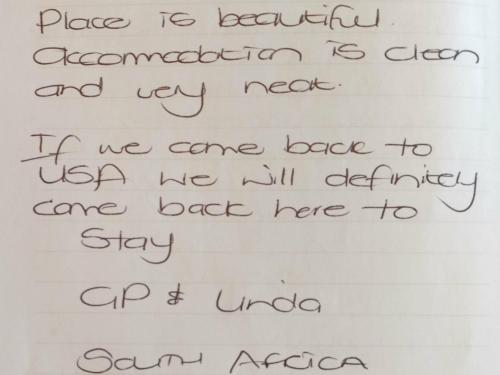 Place is beautiful.
accommodation is clean
and very neat.
If we come back to
USA we will definitely
come back here to
Stay
GP & Linda
South Africa